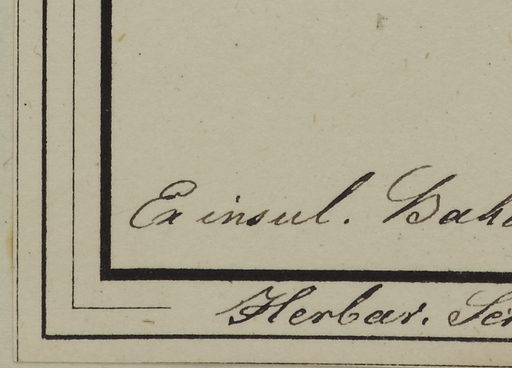 Ex insul. Baha
Herbar. Ser